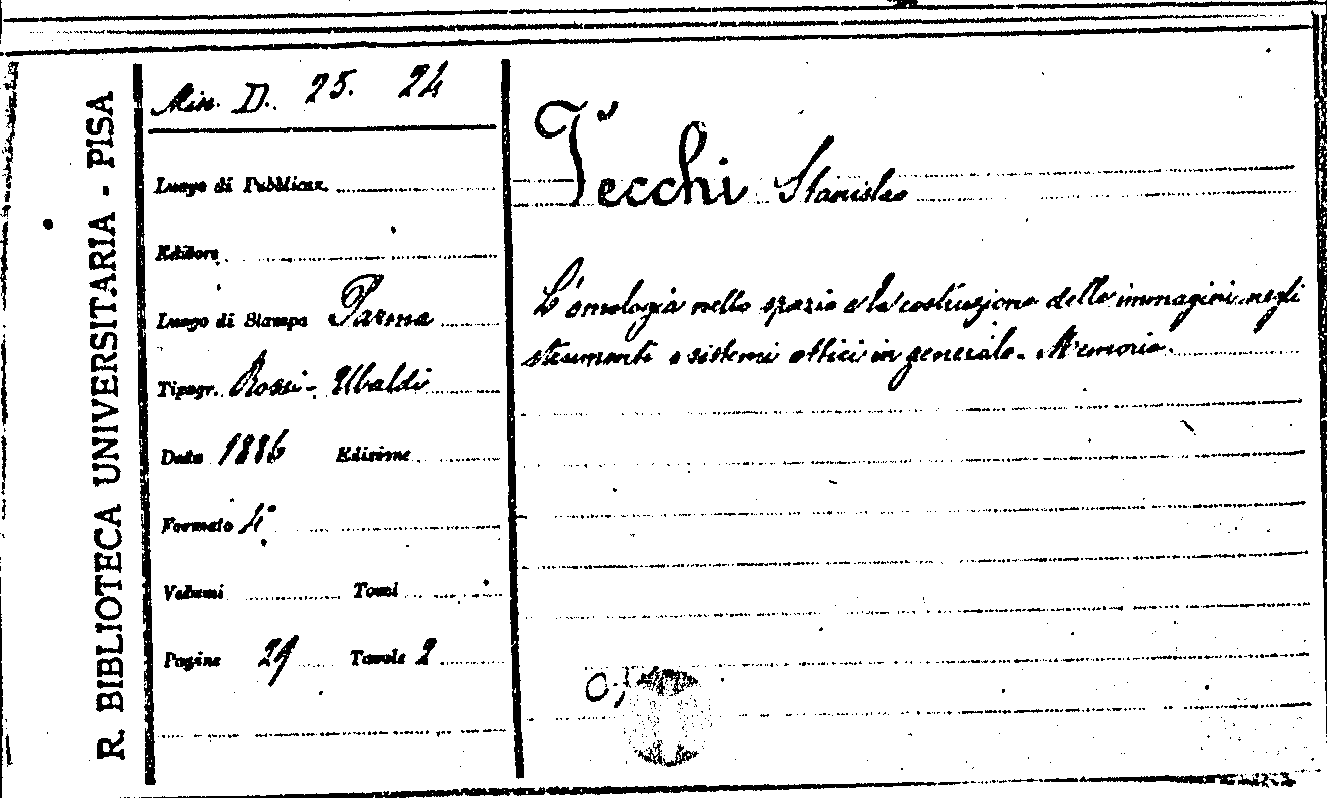 R. BIBLIOTECA UNIVERSITARIA - PISA
Min. D. 25. 24
Luogo di Pubblicaz.
Editore
Luogo di Stampa Parma
Tipogr. Rossi-Ubaldi
Data 1886 Edizione
Formato 4°
Volumi Tomi
Pagine 29 Tavole 2
Vecchi Stanislao
L'omologia nello spazio e la costruzione delle immagini negli
strumenti e sistemi ottici in generale. Memoria.